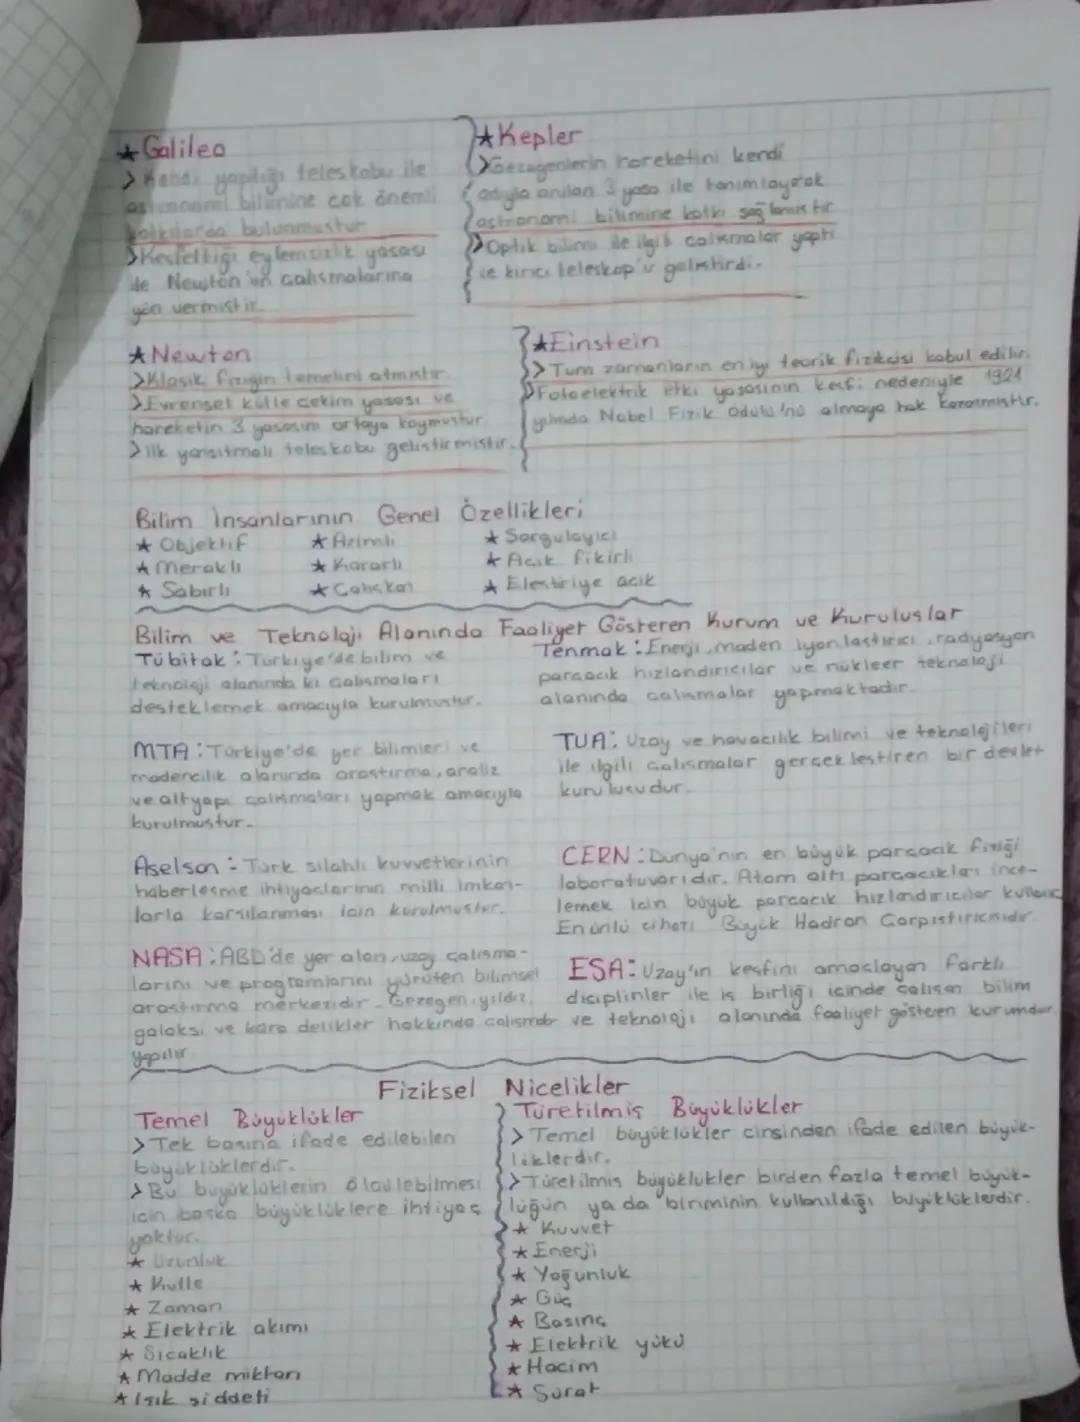 ★ Galileo
> Kendi yaptığı teleskobu ile
astronomi bilimine çok önemli
katkılarda bulunmuştur
> Keşfettiği eylemsizlik yasası
ile Newton'un çalışmalarına
yön vermiştir.
★ Kepler
> Gezegenlerin hareketini kendi
adıyla anılan 3 yasa ile tanımlayarak
astronomi bilimine katkı sağlamıştır
> Optik bilimi ile ilgili çalışmalar yaptı
ve kırıcı teleskop'u geliştirdi.
★ Newton
> Klasik fiziğin temelini atmıştır.
> Evrensel kütle çekim yasası ve
hareketin 3 yasasını ortaya koymuştur
> ilk yansıtmalı teleskobu geliştirmiştir.
★ Einstein
> Tüm zamanların en iyi teorik fizikçisi kabul edilir.
> Fotoelektrik etki yasasının keşfi nedeniyle 1921
yılında Nobel Fizik Ödülü'nü almaya hak kazanmıştır.
Bilim İnsanlarının Genel Özellikleri
★ Objektif ★ Azimli ★ Sorgulayıcı
★ Meraklı ★ Kararlı ★ Açık fikirli
★ Sabırlı ★ Çalışkan ★ Eleştiriye açık
Bilim ve Teknoloji Alanında Faaliyet Gösteren Kurum ve Kuruluşlar
Tübitak : Türkiye'de bilim ve
teknoloji alanında ki çalışmaları
desteklemek amacıyla kurulmuştur.
Tenmak : Enerji, maden iyonlaştırıcı, radyasyon
parçacık hızlandırıcılar ve nükleer teknoloji
alanında çalışmalar yapmaktadır.
MTA : Türkiye'de yer bilimleri ve
madencilik alanında araştırma, analiz
ve altyapı çalışmaları yapmak amacıyla
kurulmuştur.
TUA : Uzay ve havacılık bilimi ve teknolojileri
ile ilgili çalışmalar gerçekleştiren bir devlet
kuruluşudur.
Aselsan : Türk silahlı kuvvetlerinin
haberleşme ihtiyaçlarının milli imkan-
larla karşılanması için kurulmuştur.
CERN : Dünya'nın en büyük parçacık fiziği
laboratuvarıdır. Atom altı parçacıkları ince-
lemek için büyük parçacık hızlandırıcılar kullanır
En ünlü cihazı Büyük Hadron Çarpıştırıcısıdır.
NASA : ABD'de yer alan, uzay çalışma-
larını ve programlarını yürüten bilimsel
araştırma merkezidir. Gezegen, yıldız,
galaksi ve kara delikler hakkında çalışmalar
yapılır.
ESA : Uzay'ın keşfini amaçlayan farklı
disiplinler ile iş birliği içinde çalışan bilim
ve teknoloji alanında faaliyet gösteren kurumdur.
Fiziksel Nicelikler
Temel Büyüklükler
> Tek başına ifade edilebilen
büyüklüklerdir.
> Bu büyüklüklerin ölçülebilmesi
için başka büyüklüklere ihtiyaç
yoktur.
★ Uzunluk
★ Kütle
★ Zaman
★ Elektrik akımı
★ Sıcaklık
★ Madde miktarı
★ Işık şiddeti
Türetilmiş Büyüklükler
> Temel büyüklükler cinsinden ifade edilen büyük-
lüklerdir.
> Türetilmiş büyüklükler birden fazla temel büyük-
lüğün ya da biriminin kullanıldığı büyüklüklerdir.
★ Kuvvet
★ Enerji
★ Yoğunluk
★ Güç
★ Basınç
★ Elektrik yükü
★ Hacim
★ Sürat